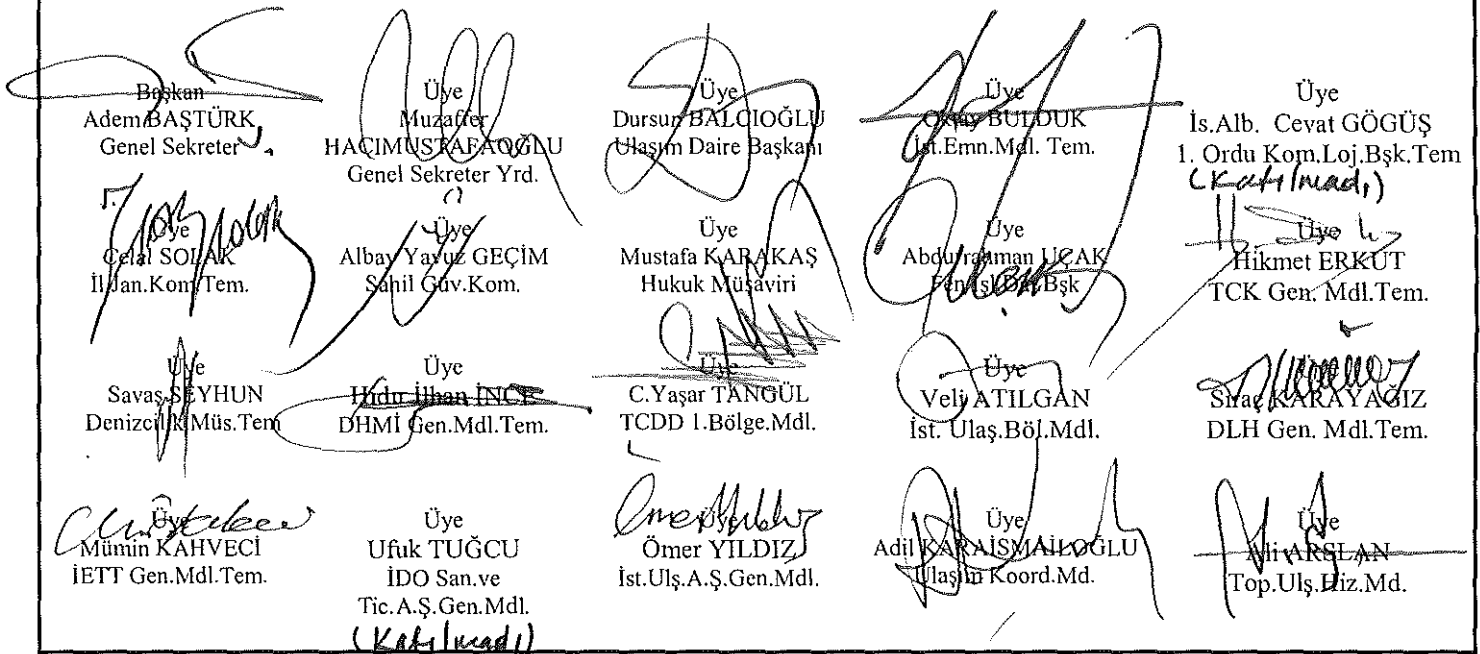 Başkan
Adem BAŞTÜRK
Genel Sekreter
Üye
Muzaffer
HACIMUSTAFAOĞLU
Genel Sekreter Yrd.
Üye
Dursun BALCIOĞLU
Ulaşım Daire Başkanı
Üye
Oktay BULDUK
İst.Emn.Mdl. Tem.
Üye
İs.Alb. Cevat GÖGÜŞ
1. Ordu Kom.Loj.Bşk.Tem
(Katılmadı)
Üye
Celal SOLAK
İl Jan.Kom.Tem.
Üye
Albay Yavuz GEÇİM
Sahil Güv.Kom.
Üye
Mustafa KARAKAŞ
Hukuk Müşaviri
Üye
Abdurrahman UÇAK
Fen İşl.Dai.Bşk
Üye
Hikmet ERKUT
TCK Gen. Mdl.Tem.
Üye
Savaş SEYHUN
Denizcilik Müs.Tem
Üye
Hıdır İlhan İNCE
DHMİ Gen.Mdl.Tem.
Üye
C.Yaşar TANGÜL
TCDD 1.Bölge.Mdl.
Üye
Veli ATILGAN
İst. Ulaş.Böl.Mdl.
Üye
Siraç KARAYAĞIZ
DLH Gen. Mdl.Tem.
Üye
Mümin KAHVECİ
İETT Gen.Mdl.Tem.
Üye
Ufuk TUĞCU
İDO San.ve
Tic.A.Ş.Gen.Mdl.
(Katılmadı)
Üye
Ömer YILDIZ
İst.Ulş.A.Ş.Gen.Mdl.
Üye
Adil KARAİSMAİLOĞLU
Ulaşım Koord.Md.
Üye
Ali ARSLAN
Top.Ulş.Hiz.Md.